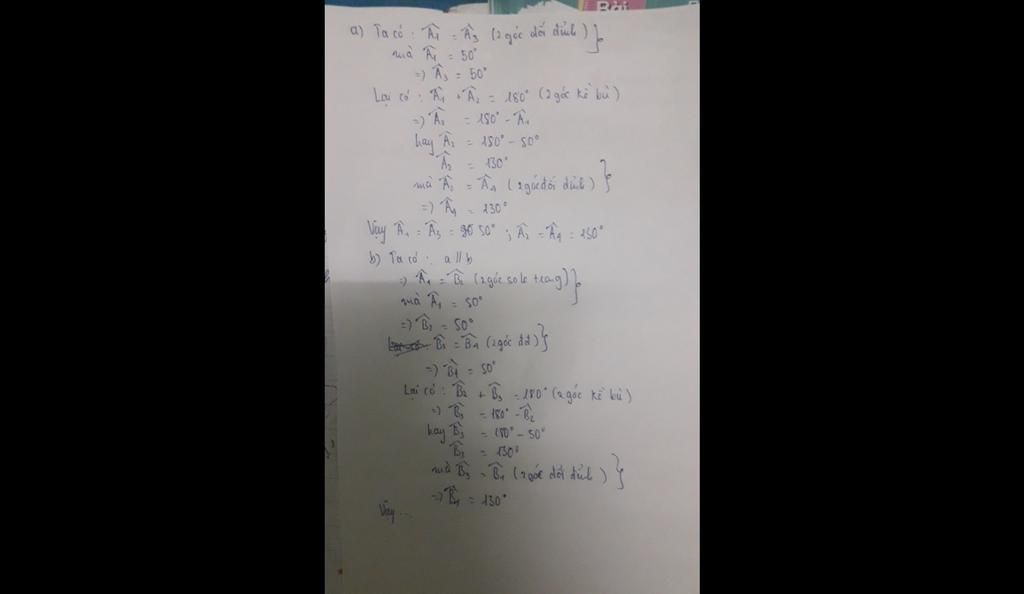 Bài
a) Ta có : Â₁ = Â₃ (2 góc đối đỉnh) }
mà Â₁ = 50°
=> Â₃ = 50°
Lại có : Â₁ + Â₂ = 180° (2 góc kề bù)
=> Â₂ = 180° - Â₁
hay Â₂ = 180° - 50°
Â₂ = 130°
mà Â₂ = Â₄ (2 góc đối đỉnh) }
=> Â₄ = 130°
Vậy Â₁ = Â₃ = 50° ; Â₂ = Â₄ = 130°
b) Ta có : a // b
=> Â₁ = B̂₂ (2 góc so le trong) }
mà Â₁ = 50°
=> B̂₂ = 50°
B̂₂ = B̂₄ (2 góc đđ) }
=> B̂₄ = 50°
Lại có : B̂₂ + B̂₃ = 180° (2 góc kề bù)
=> B̂₃ = 180° - B̂₂
hay B̂₃ = 180° - 50°
B̂₃ = 130°
mà B̂₃ = B̂₁ (2 góc đối đỉnh) }
=> B̂₁ = 130°
Vậy ...